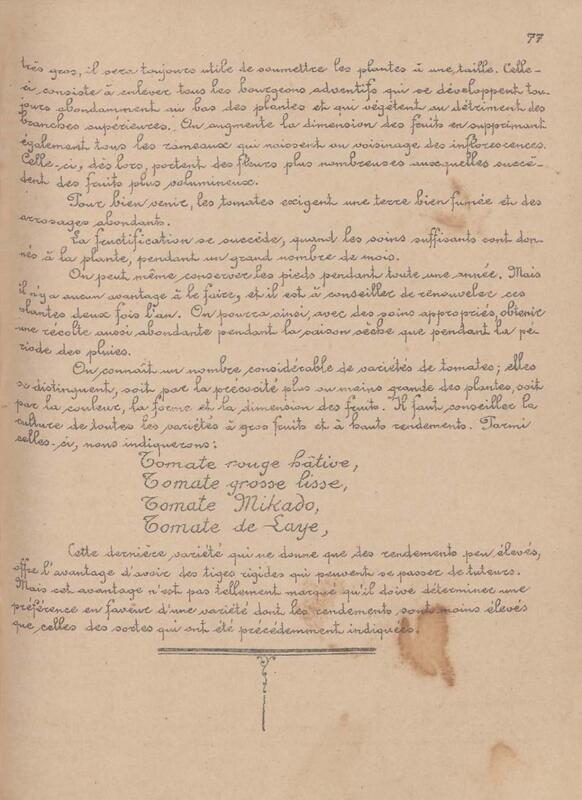 77
très gros, il sera toujours utile de soumettre les plantes à une taille. Celle-
ci consiste à enlever tous les bourgeons adventifs qui se développent tou-
jours abondamment au bas des plantes et qui végètent au détriment des
branches supérieures. On augmente la dimension des fruits en supprimant
également tous les rameaux qui naissent au voisinage des inflorescences.
Celle-ci, dès lors, portent des fleurs plus nombreuses auxquelles succè-
dent des fruits plus volumineux.
Pour bien venir, les tomates exigent une terre bien fumée et des
arrosages abondants.
La fructification se succède, quand les soins suffisants sont don-
nés à la plante, pendant un grand nombre de mois.
On peut même conserver les pieds pendant toute une année. Mais
il n'y a aucun avantage à le faire, et il est à conseiller de renouveler ces
plantes deux fois l'an. On pourra ainsi avec des soins appropriés, obtenir
une récolte aussi abondante pendant la saison sèche que pendant la pé-
riode des pluies.
On connaît un nombre considérable de variétés de tomates; elles
se distinguent, soit par la précocité plus ou moins grande des plantes, soit
par la couleur, la forme et la dimension des fruits. Il faut conseiller la
culture de toutes les variétés à gros fruits et à hauts rendements. Parmi
celles-ci, nous indiquerons:
Tomate rouge hâtive,
Tomate grosse lisse,
Tomate Mikado,
Tomate de Laye,
Cette dernière variété qui ne donne que des rendements peu élevés,
offre l'avantage d'avoir des tiges rigides qui peuvent se passer de tuteurs.
Mais cet avantage n'est pas tellement marqué qu'il doive déterminer une
préférence en faveur d'une variété dont les rendements sont moins élevés
que celles des sortes qui ont été précédemment indiquées.